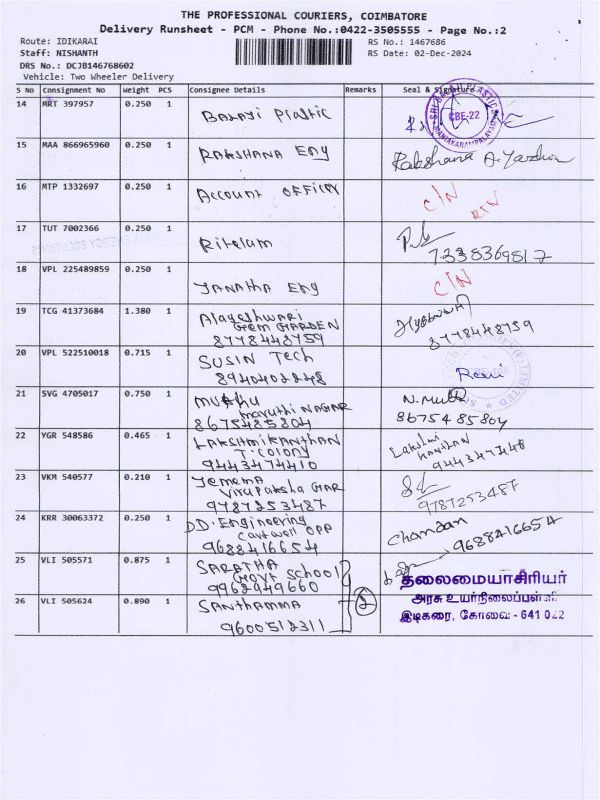 THE PROFESSIONAL COURIERS, COIMBATORE
Delivery Runsheet - PCM - Phone No.:0422-3505555 - Page No.:2
Route: IDIKARAI
RS No.: 1467686
Staff: NISHANTH
RS Date: 02-Dec-2024
DRS No.: DCJB146768602
Vehicle: Two Wheeler Delivery
S No Consignment No Weight PCS Consignee Details Remarks Seal & Signature
14 MRT 397957 0.250 1 BALAJI Plastic
CBE-22
15 MAA 866965960 0.250 1 RAKSHANA Eng Rakshana
16 MTP 1332697 0.250 1 Account OFFICER C/N
RTN
17 TUT 7002366 0.250 1 Ritelam
7338369817
18 VPL 225489859 0.250 1 JANATHA Eng C/N
19 TCG 41373684 1.380 1 Alageshwari
Gem GARDEN
8778448759 8778448759
20 VPL 522510018 0.715 1 SUSIN Tech
8940402248
21 SVG 4705017 0.750 1 MUTHU N. Muthu
maruthi NAGAR
8675485804 8675485804
22 YGR 548586 0.465 1 LAKSHMIKANTHAN Lakshmi
T. Colony KANTHAN
9443474410
23 VKM 540577 0.210 1
9787253487 9787253487
24 KRR 30063372 0.250 1 DD. Engineering Chandan
OPP
9688416654 9688416654
25 VLI 505571 0.875 1 SARATHA
Govt School
9962949660
தலைமையாசிரியர்
26 VLI 505624 0.890 1 SANTHAMMA
அரசு உயர்நிலைப்பள்ளி
9600512311 2
இடிகரை, கோவை - 641 022